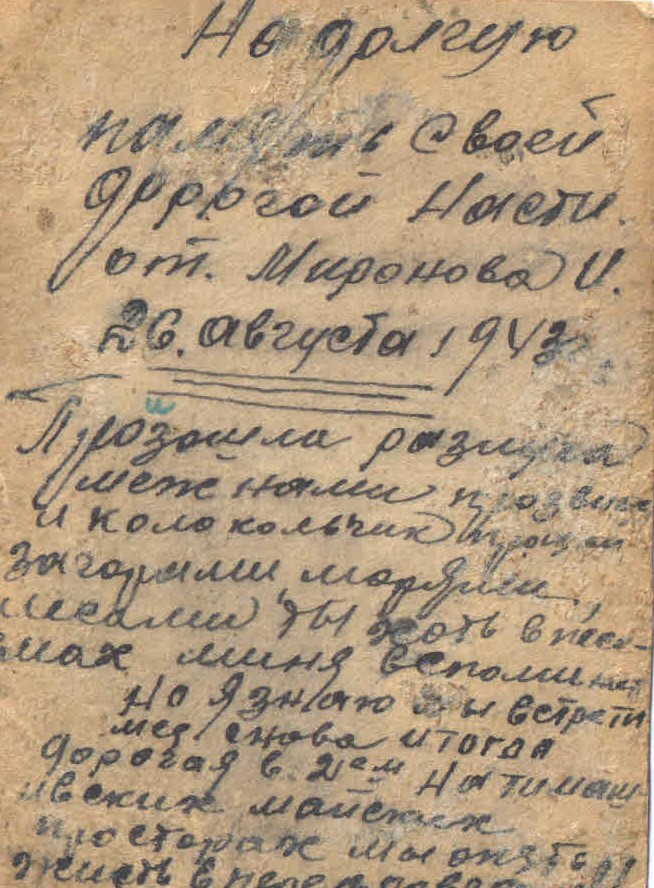 На долгую
память своей
дорогой Насти.
от. Миронова И.
26. августа 1943
Прозошла разлука
меж нами прозвене
и колокольчик
загорами, морями,
лесами ты хоть в пись-
мах миня вспоминай
но я знаю мы встрети
мся снова и тогда
дорогая в
майских
просторах мы опять